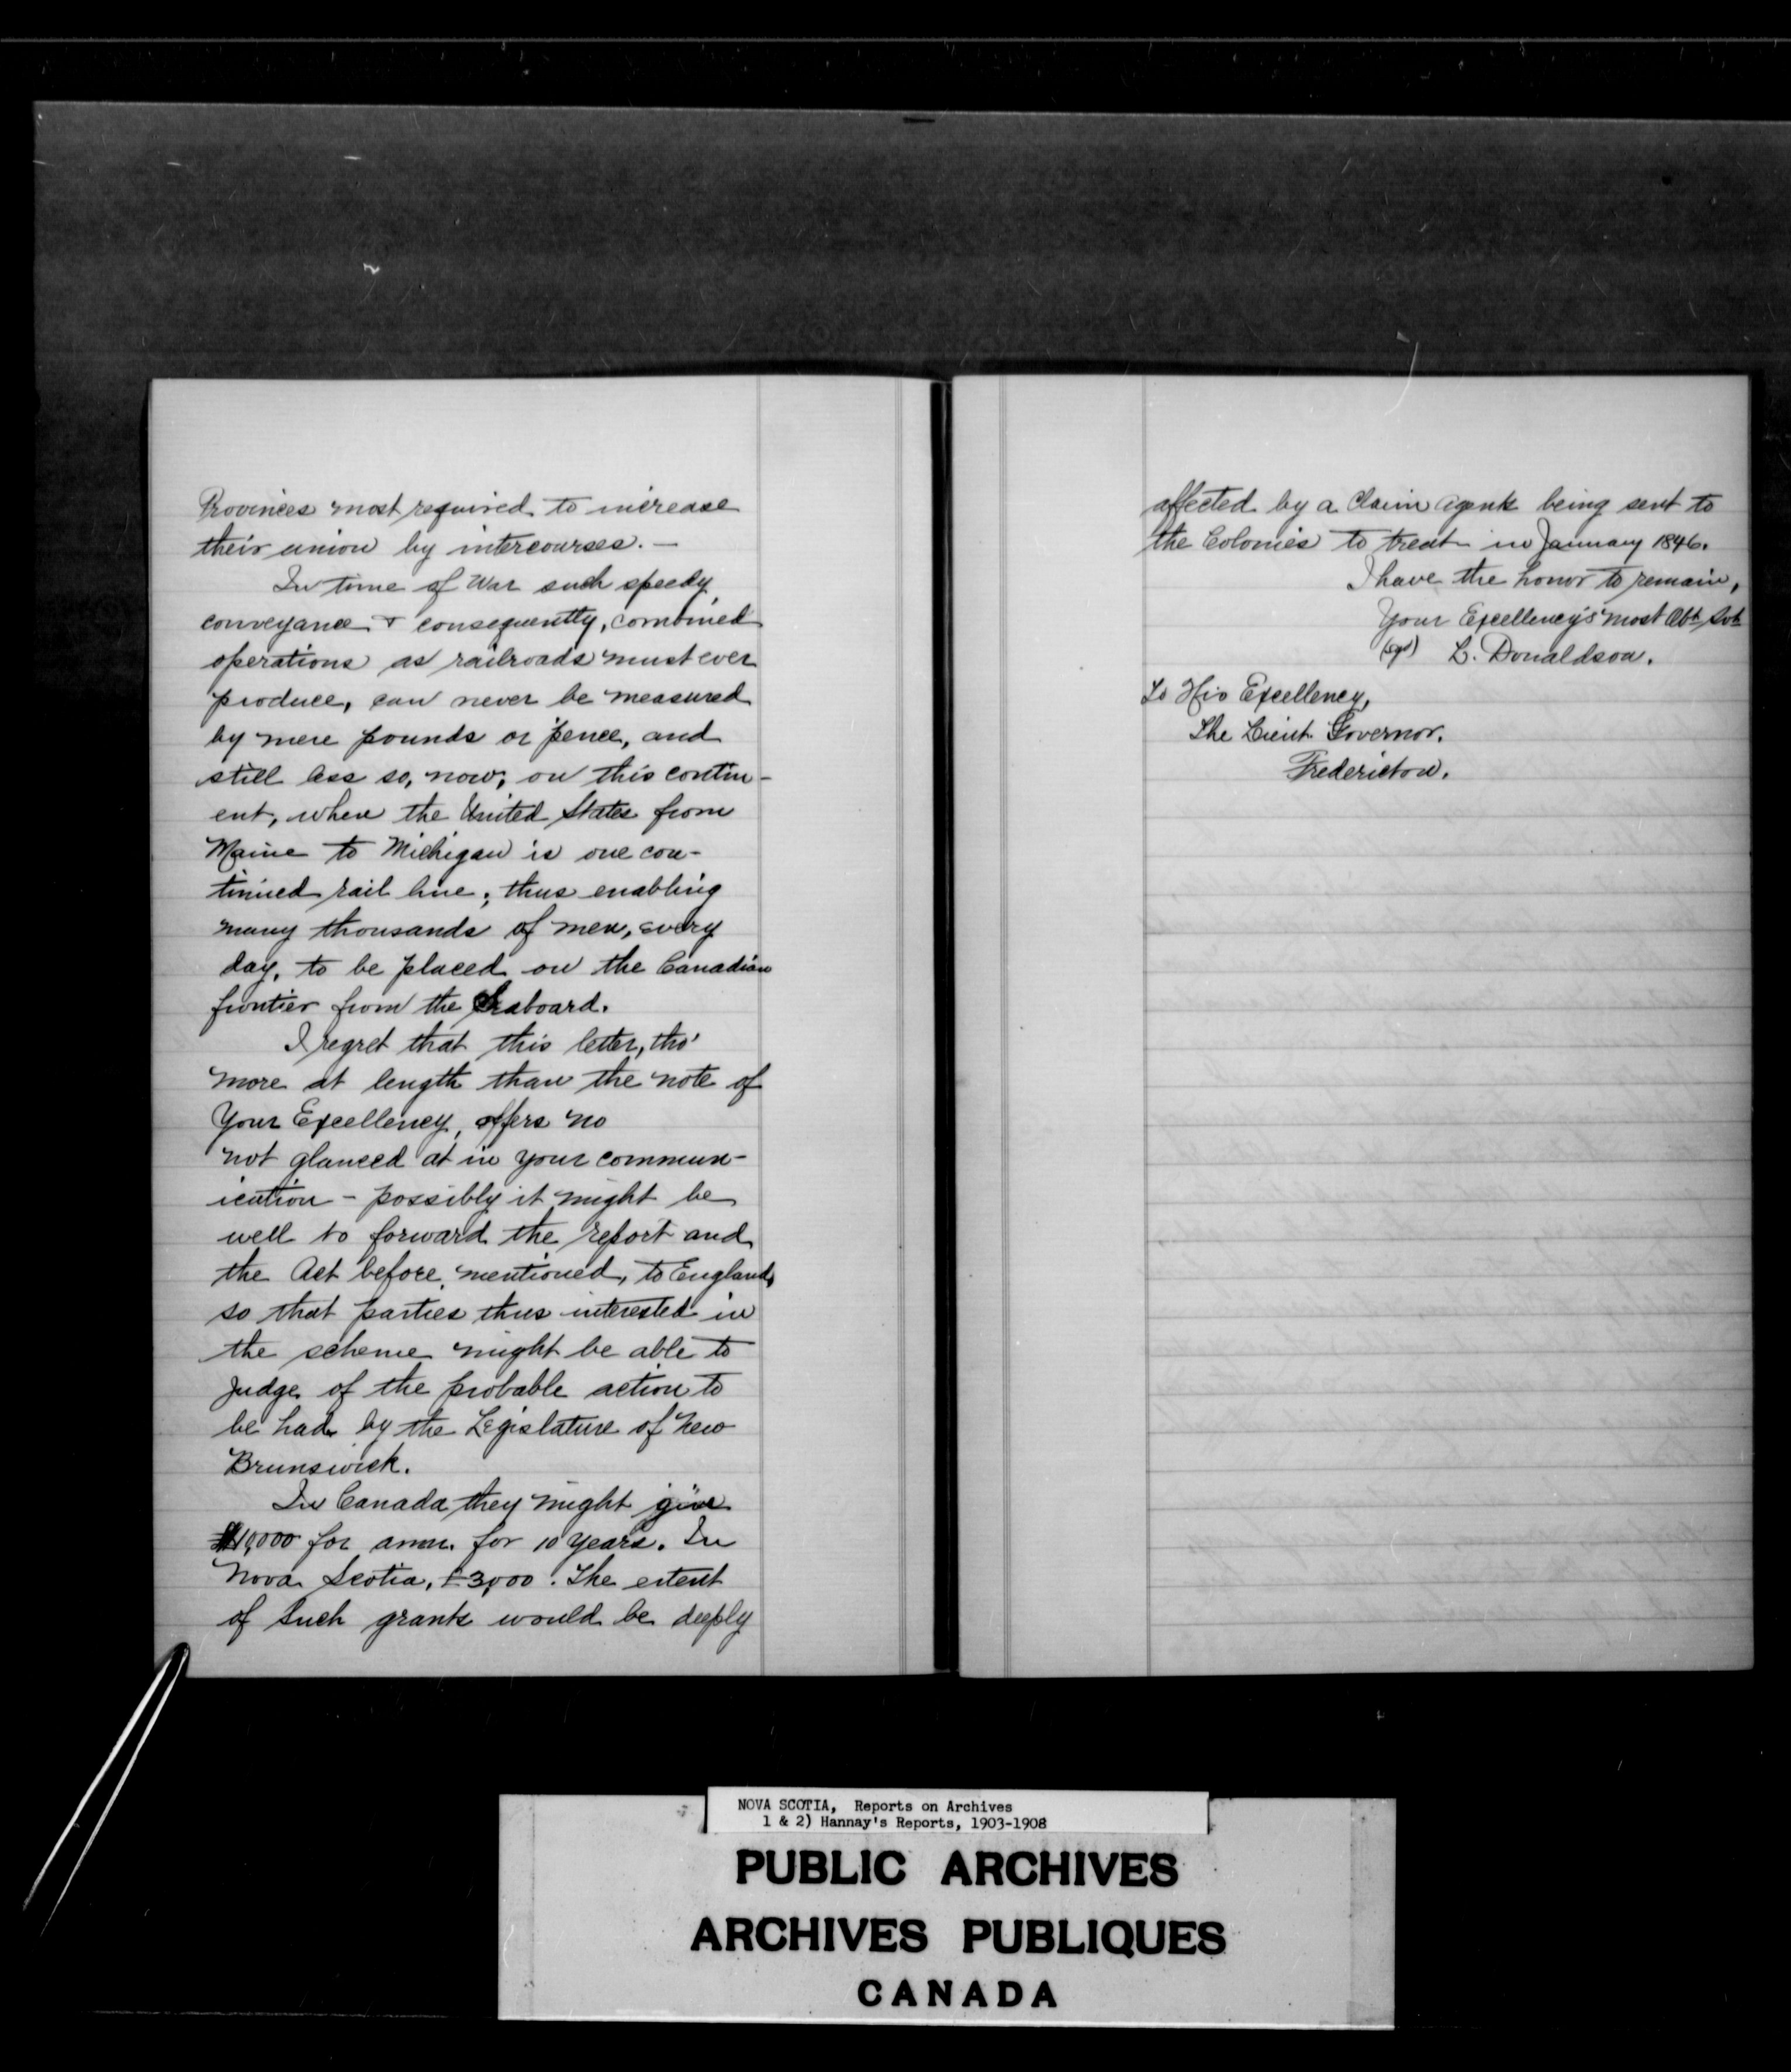 Provinces most required to increase
their union by intercourses. —
In time of War such speedy
conveyance & consequently, combined
operations as railroads must ever
produce, can never be measured
by mere pounds or pence, and
still less so, now, on this contin-
ent, when the United States from
Maine to Michigan is one con-
tinued rail line; thus enabling
many thousands of men, every
day, to be placed on the Canadian
frontier from the Seaboard.
I regret that this letter, tho'
more at length than the note of
Your Excellency, offers no
not glanced at in your commun-
ication - possibly it might be
well to forward the report and
the Act before mentioned, to England,
so that parties thus interested in
the scheme might be able to
judge of the probable action to
be had by the Legislature of New
Brunswick.
In Canada they might give
£10,000 for annu. for 10 years. In
Nova Scotia, £3,000. The extent
of such grants would be deeply
affected by a Claim agent being sent to
the Colonies to treat in January 1846.
I have the honor to remain,
Your Excellency's most Obt Svt
(sgd) L. Donaldson.
To His Excellency,
The Lieut. Governor.
Fredericton.
NOVA SCOTIA, Reports on Archives
1 & 2) Hannay's Reports, 1903-1908
PUBLIC ARCHIVES
ARCHIVES PUBLIQUES
CANADA